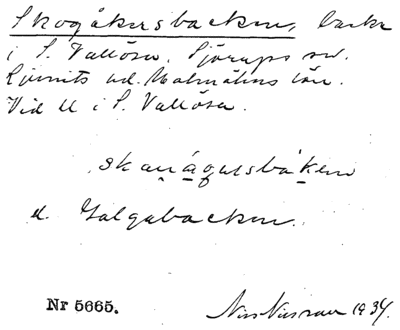 Skogåkersbacken, backe
i S. Vallösa, Sjörups sn.
Ljunits hd. Malmöhus län.
Vid U i S. Vallösa.
d. Galgabacken.
Nr 5665. Nils Nilsson 1934.